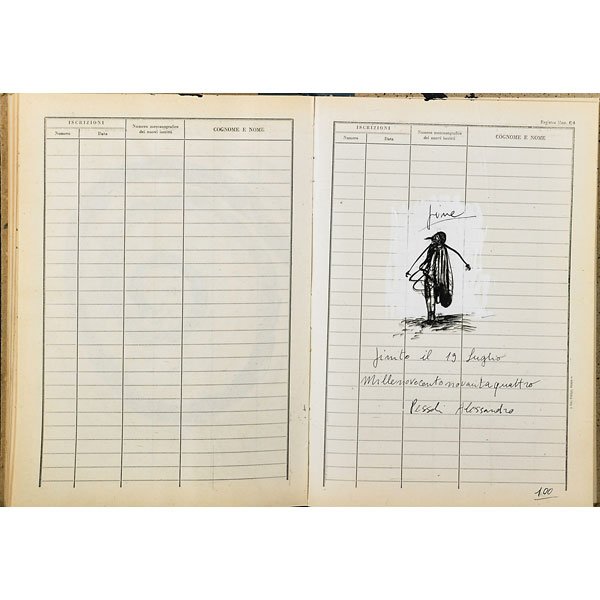 ISCRIZIONI
Numero
Data
Numero meccanografico
dei nuovi iscritti
COGNOME E NOME
Registro Mod. 64
ISCRIZIONI
Numero
Data
Numero meccanografico
dei nuovi iscritti
COGNOME E NOME
fine
finito il 19 luglio
Millenovecentonovantaquattro
Pessoli Alessandro
100